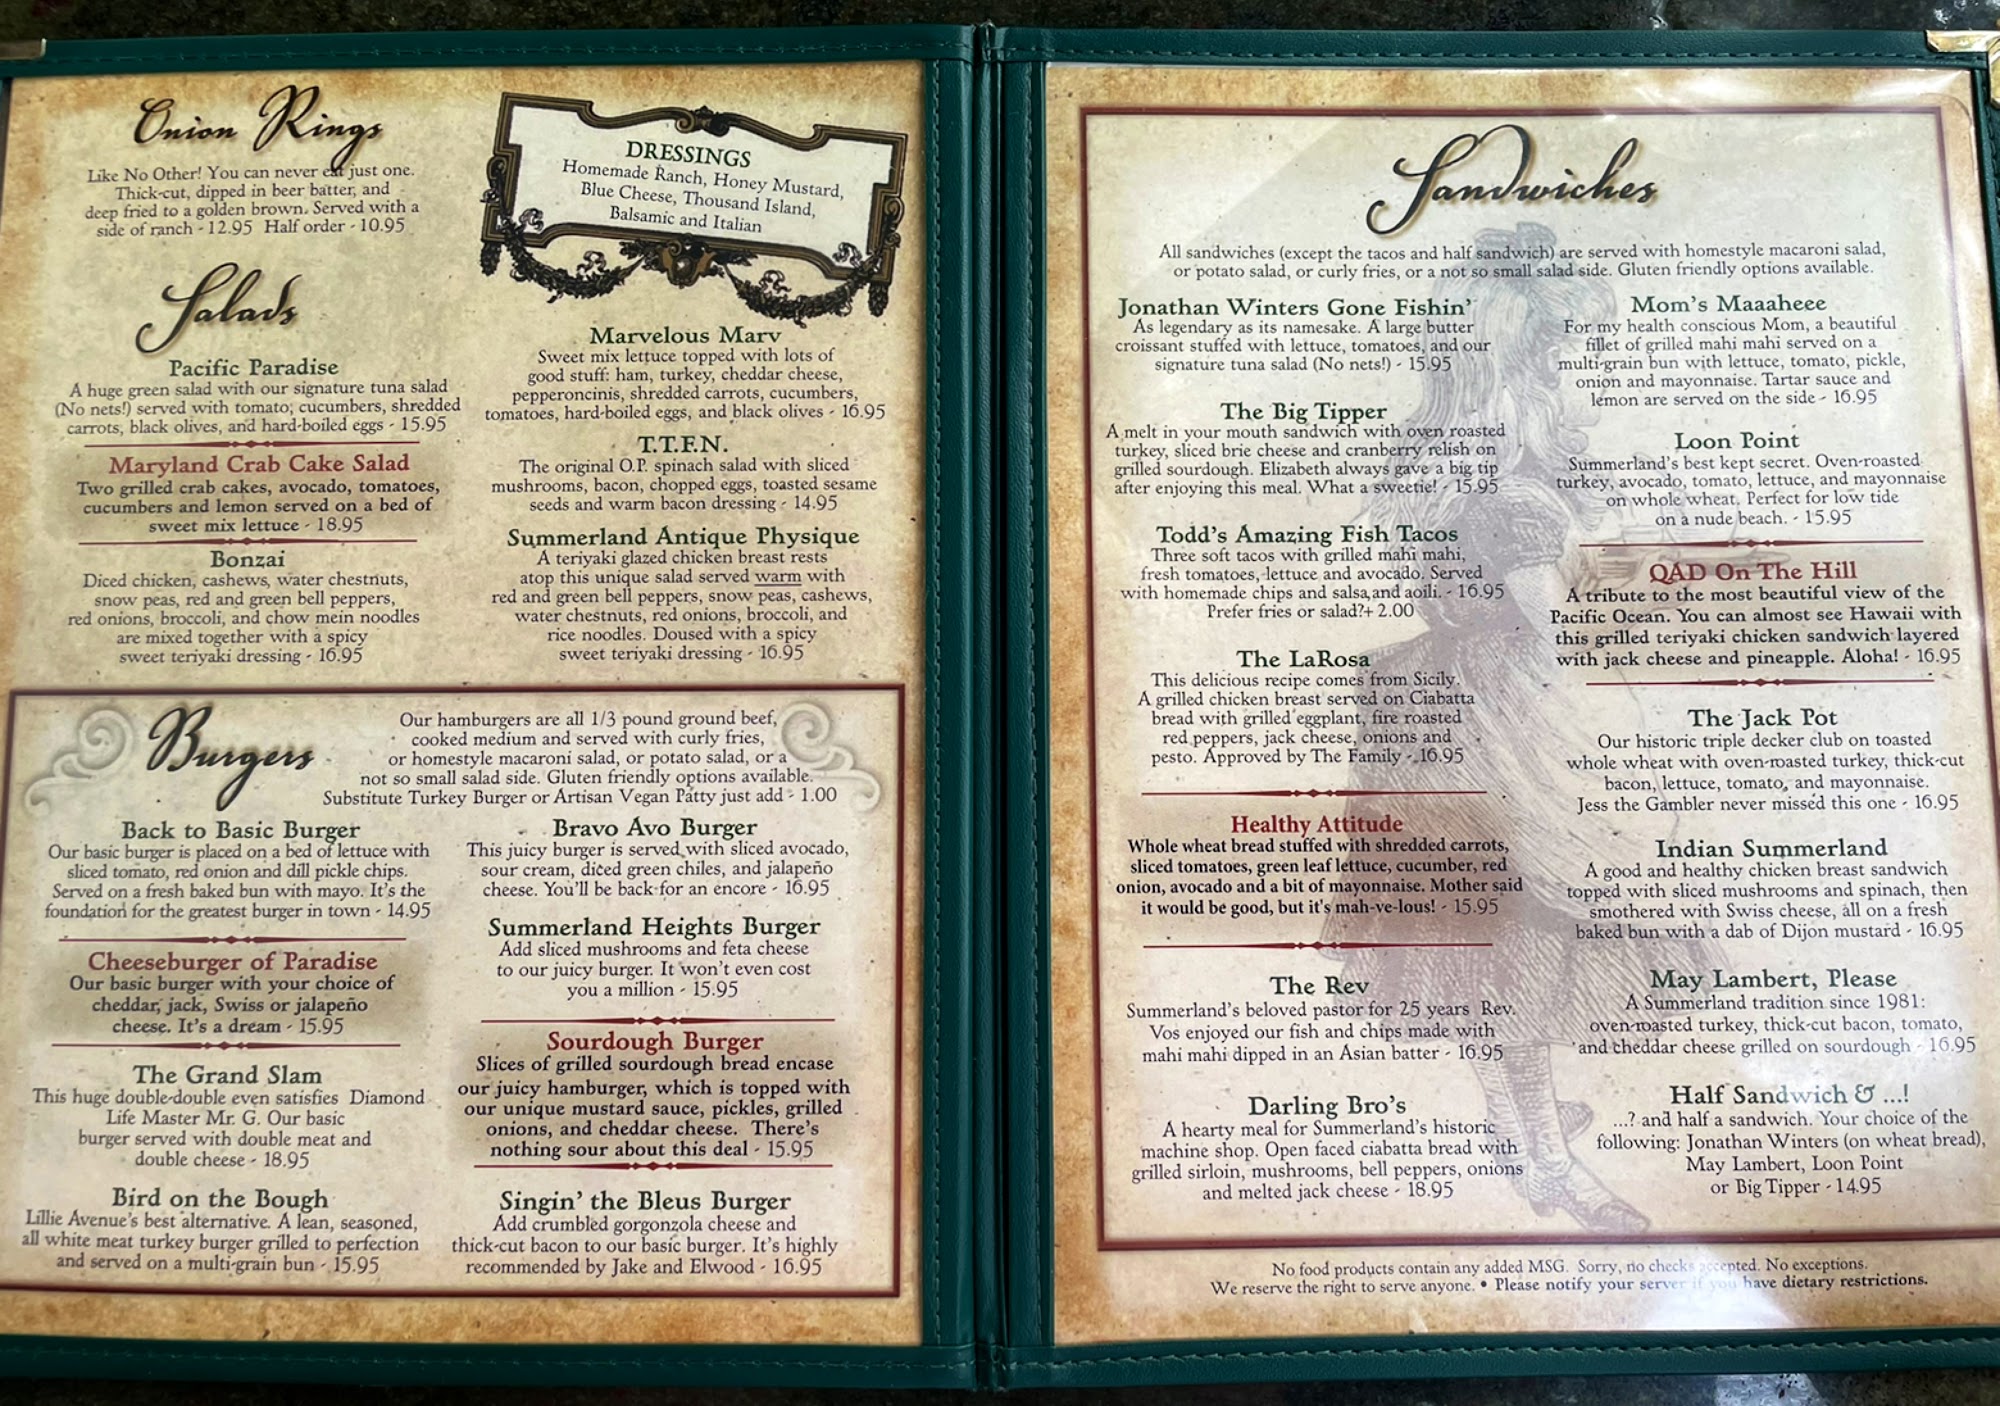 Onion Rings
Like No Other! You can never eat just one.
Thick-cut, dipped in beer batter, and
deep fried to a golden brown. Served with a
side of ranch - 12.95 Half order - 10.95
DRESSINGS
Homemade Ranch, Honey Mustard,
Blue Cheese, Thousand Island,
Balsamic and Italian
Salads
Pacific Paradise
A huge green salad with our signature tuna salad
(No nets!) served with tomato, cucumbers, shredded
carrots, black olives, and hard-boiled eggs - 15.95
Maryland Crab Cake Salad
Two grilled crab cakes, avocado, tomatoes,
cucumbers and lemon served on a bed of
sweet mix lettuce - 18.95
Bonzai
Diced chicken, cashews, water chestnuts,
snow peas, red and green bell peppers,
red onions, broccoli, and chow mein noodles
are mixed together with a spicy
sweet teriyaki dressing - 16.95
Marvelous Marv
Sweet mix lettuce topped with lots of
good stuff: ham, turkey, cheddar cheese,
pepperoncinis, shredded carrots, cucumbers,
tomatoes, hard-boiled eggs, and black olives - 16.95
T.T.F.N.
The original O.P. spinach salad with sliced
mushrooms, bacon, chopped eggs, toasted sesame
seeds and warm bacon dressing - 14.95
Summerland Antique Physique
A teriyaki glazed chicken breast rests
atop this unique salad served warm with
red and green bell peppers, snow peas, cashews,
water chestnuts, red onions, broccoli, and
rice noodles. Doused with a spicy
sweet teriyaki dressing - 16.95
Burgers
Our hamburgers are all 1/3 pound ground beef,
cooked medium and served with curly fries,
or homestyle macaroni salad, or potato salad, or a
not so small salad side. Gluten friendly options available.
Substitute Turkey Burger or Artisan Vegan Patty just add - 1.00
Back to Basic Burger
Our basic burger is placed on a bed of lettuce with
sliced tomato, red onion and dill pickle chips.
Served on a fresh baked bun with mayo. It's the
foundation for the greatest burger in town - 14.95
Cheeseburger of Paradise
Our basic burger with your choice of
cheddar, jack, Swiss or jalapeño
cheese. It's a dream - 15.95
The Grand Slam
This huge double-double even satisfies Diamond
Life Master Mr. G. Our basic
burger served with double meat and
double cheese - 18.95
Bird on the Bough
Lillie Avenue's best alternative. A lean, seasoned,
all white meat turkey burger grilled to perfection
and served on a multi-grain bun - 15.95
Bravo Avo Burger
This juicy burger is served with sliced avocado,
sour cream, diced green chiles, and jalapeño
cheese. You'll be back for an encore - 16.95
Summerland Heights Burger
Add sliced mushrooms and feta cheese
to our juicy burger. It won't even cost
you a million - 15.95
Sourdough Burger
Slices of grilled sourdough bread encase
our juicy hamburger, which is topped with
our unique mustard sauce, pickles, grilled
onions, and cheddar cheese. There's
nothing sour about this deal - 15.95
Singin' the Bleus Burger
Add crumbled gorgonzola cheese and
thick-cut bacon to our basic burger. It's highly
recommended by Jake and Elwood - 16.95
Sandwiches
All sandwiches (except the tacos and half sandwich) are served with homestyle macaroni salad,
or potato salad, or curly fries, or a not so small salad side. Gluten friendly options available.
Jonathan Winters Gone Fishin'
As legendary as its namesake. A large butter
croissant stuffed with lettuce, tomatoes, and our
signature tuna salad (No nets!) - 15.95
The Big Tipper
A melt in your mouth sandwich with oven roasted
turkey, sliced brie cheese and cranberry relish on
grilled sourdough. Elizabeth always gave a big tip
after enjoying this meal. What a sweetie! - 15.95
Todd's Amazing Fish Tacos
Three soft tacos with grilled mahi mahi,
fresh tomatoes, lettuce and avocado. Served
with homemade chips and salsa,and aoili. - 16.95
Prefer fries or salad?+ 2.00
The LaRosa
This delicious recipe comes from Sicily.
A grilled chicken breast served on Ciabatta
bread with grilled eggplant, fire roasted
red peppers, jack cheese, onions and
pesto. Approved by The Family - 16.95
Healthy Attitude
Whole wheat bread stuffed with shredded carrots,
sliced tomatoes, green leaf lettuce, cucumber, red
onion, avocado and a bit of mayonnaise. Mother said
it would be good, but it's mah-ve-lous! - 15.95
The Rev
Summerland's beloved pastor for 25 years Rev.
Vos enjoyed our fish and chips made with
mahi mahi dipped in an Asian batter - 16.95
Darling Bro's
A hearty meal for Summerland's historic
machine shop. Open faced ciabatta bread with
grilled sirloin, mushrooms, bell peppers, onions
and melted jack cheese - 18.95
Mom's Maaaheee
For my health conscious Mom, a beautiful
fillet of grilled mahi mahi served on a
multi-grain bun with lettuce, tomato, pickle,
onion and mayonnaise. Tartar sauce and
lemon are served on the side - 16.95
Loon Point
Summerland's best kept secret. Oven-roasted
turkey, avocado, tomato, lettuce, and mayonnaise
on whole wheat. Perfect for low tide
on a nude beach. - 15.95
QAD On The Hill
A tribute to the most beautiful view of the
Pacific Ocean. You can almost see Hawaii with
this grilled teriyaki chicken sandwich layered
with jack cheese and pineapple. Aloha! - 16.95
The Jack Pot
Our historic triple decker club on toasted
whole wheat with oven-roasted turkey, thick-cut
bacon, lettuce, tomato, and mayonnaise.
Jess the Gambler never missed this one - 16.95
Indian Summerland
A good and healthy chicken breast sandwich
topped with sliced mushrooms and spinach, then
smothered with Swiss cheese, all on a fresh
baked bun with a dab of Dijon mustard - 16.95
May Lambert, Please
A Summerland tradition since 1981:
oven-roasted turkey, thick-cut bacon, tomato,
and cheddar cheese grilled on sourdough - 16.95
Half Sandwich & ...!
...? and half a sandwich. Your choice of the
following: Jonathan Winters (on wheat bread),
May Lambert, Loon Point
or Big Tipper - 14.95
No food products contain any added MSG. Sorry, no checks accepted. No exceptions.
We reserve the right to serve anyone. • Please notify your server if you have dietary restrictions.